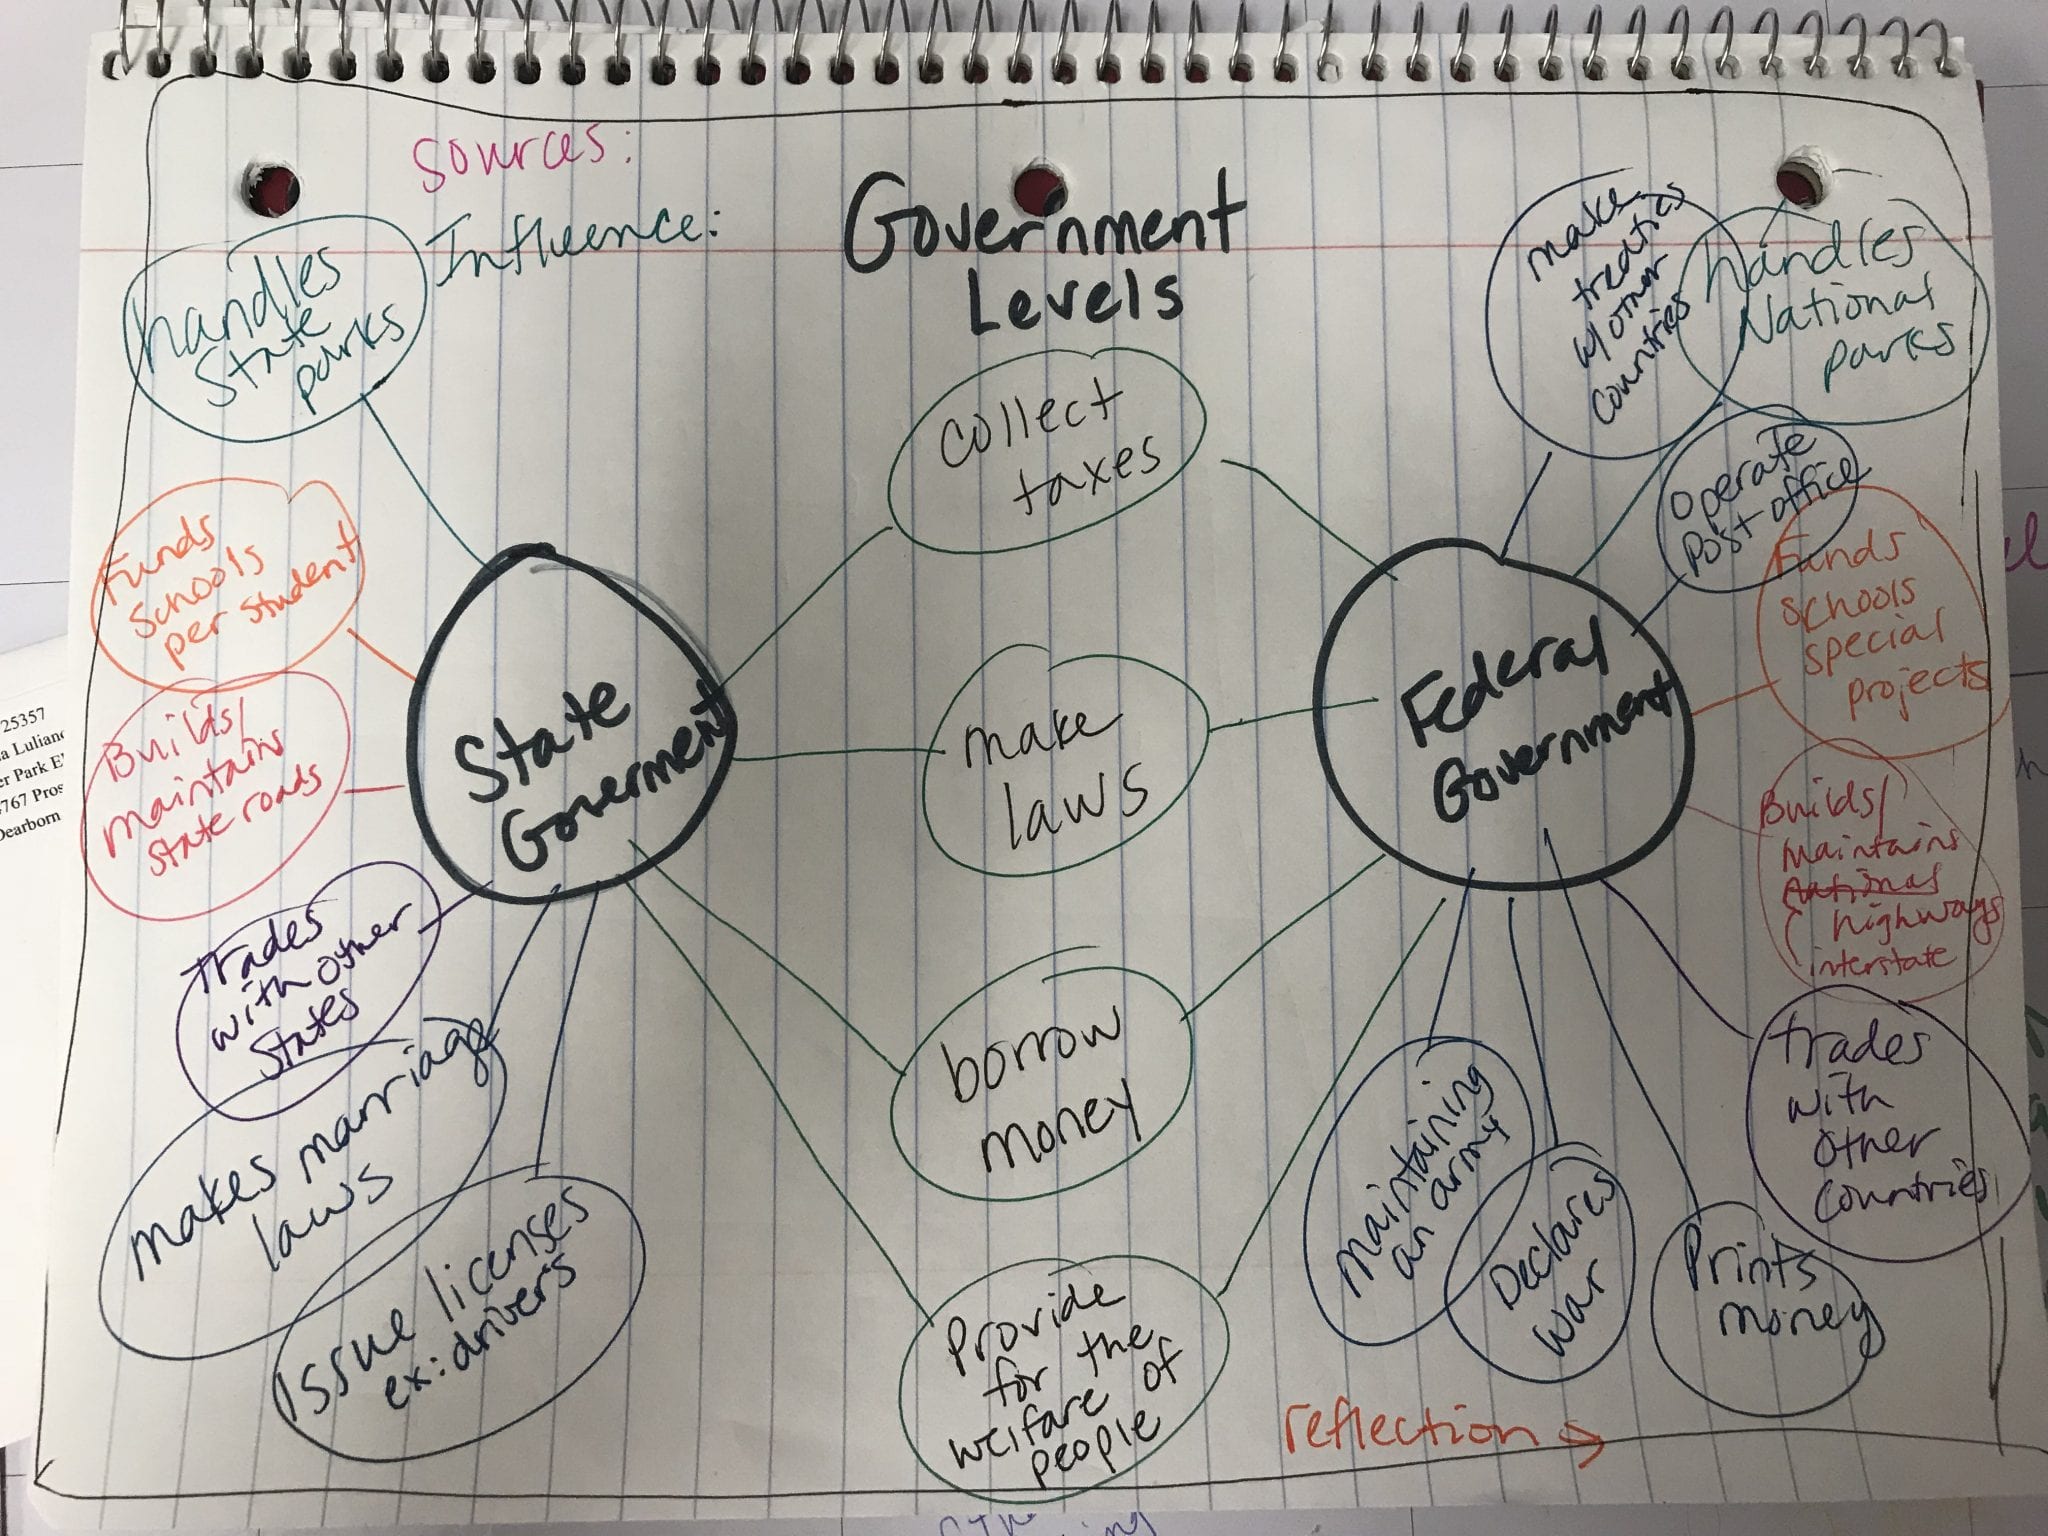 Sources:
Influence:
Government
Levels
handles
State
parks
Funds
Schools
per student
Builds/
maintains
state roads
trades
with other
States
makes marriage
laws
issue licenses
ex: drivers
State
Goverment
collect
taxes
make
laws
borrow
money
Provide
for the
welfare of
people
Federal
Government
make
treaties
w/other
Countries
handles
National
parks
Operate
Post office
Funds
Schools
special
projects
Builds/
Maintains
national
highways
interstate
trades
with
other
Countries
Maintaining
an army
Declares
war
Prints
money
reflection →
25357
4767 Pros
Dearborn